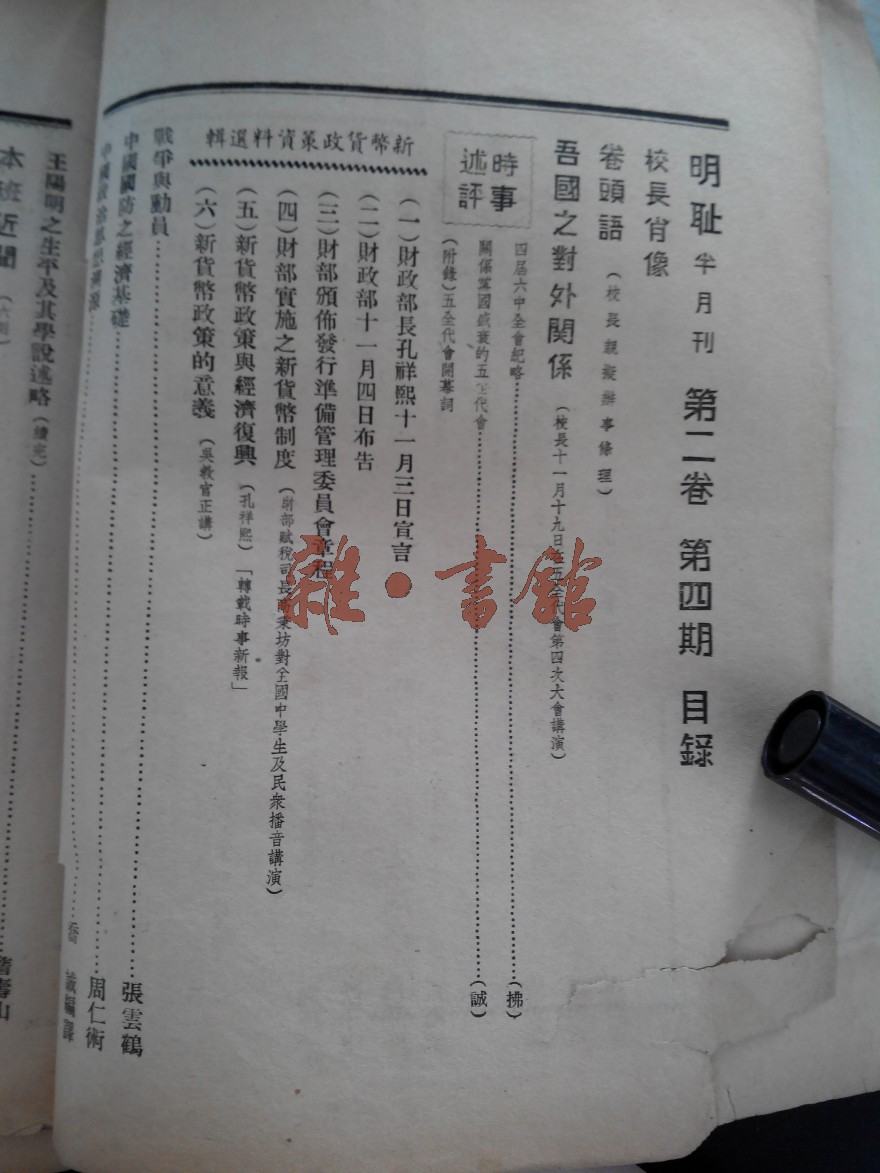 明耻 半月刊 第二卷 第四期 目錄
校長肖像
卷頭語 (校長親擬辦事條理)
吾國之對外関係 (校長十一月十九日在五全代會第四次大會講演)
時事述評
四屆六中全會紀略 (拂)
關係黨國盛衰的五全代會 (誠)
(附錄)五全代會開幕詞
新幣貨政策資料選輯
(一)財政部長孔祥熙十一月三日宣言
(二)財政部十一月四日布告
(三)財部頒佈發行準備管理委員會章程
(四)財部實施之新貨幣制度 (財部賦稅司長高秉坊對全國中學生及民衆播音講演)
(五)新貨幣政策與經濟復興 (孔祥熙)「轉載時事新報」
(六)新貨幣政策的意義 (吳教官正講)
戰爭與動員 張雲鶴
中國國防之經濟基礎 周仁術
中國政治思想溯源 編譯
王陽明之生平及其學說述略 (續完)
本班近聞 (六則)
雜·書館